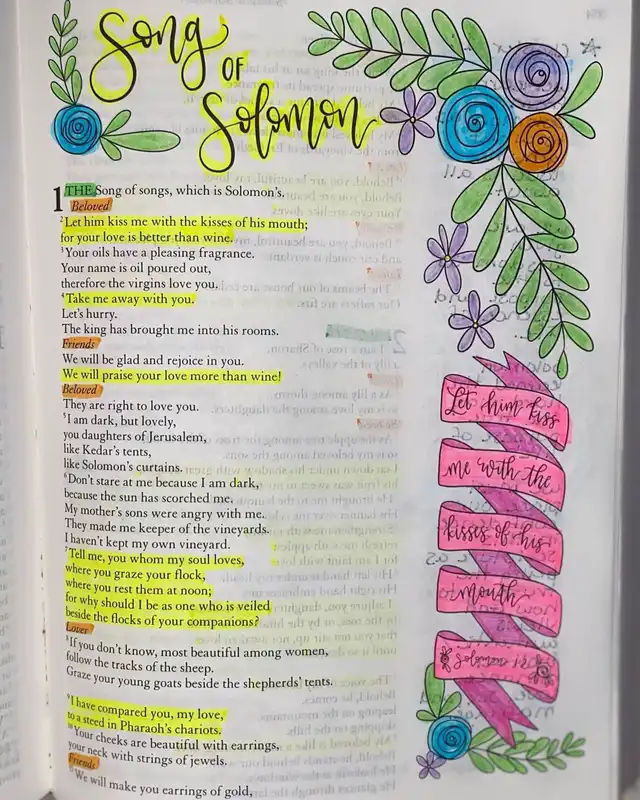 Song
OF
Solomon
1 THE Song of songs, which is Solomon's.
Beloved
2 Let him kiss me with the kisses of his mouth;
for your love is better than wine.
3 Your oils have a pleasing fragrance.
Your name is oil poured out,
therefore the virgins love you.
4 Take me away with you.
Let's hurry.
The king has brought me into his rooms.
Friends
We will be glad and rejoice in you.
We will praise your love more than wine!
Beloved
They are right to love you.
5 I am dark, but lovely,
you daughters of Jerusalem,
like Kedar's tents,
like Solomon's curtains.
6 Don't stare at me because I am dark,
because the sun has scorched me.
My mother's sons were angry with me.
They made me keeper of the vineyards.
I haven't kept my own vineyard.
7 Tell me, you whom my soul loves,
where you graze your flock,
where you rest them at noon;
for why should I be as one who is veiled
beside the flocks of your companions?
Lover
8 If you don't know, most beautiful among women,
follow the tracks of the sheep.
Graze your young goats beside the shepherds' tents.
9 I have compared you, my love,
to a steed in Pharaoh's chariots.
10 Your cheeks are beautiful with earrings,
your neck with strings of jewels.
Friends
11 We will make you earrings of gold,
Let him kiss
me with the
kisses of his
mouth
Solomon